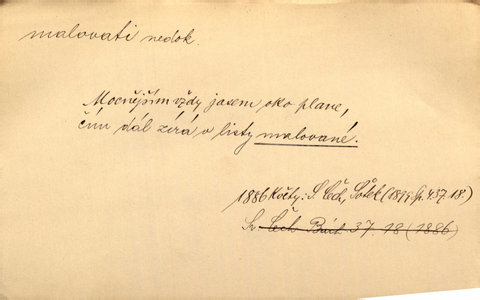 malovati nedok.
Mocnějším vždy jasem oko plane,
čím dál zírá v listy malované.
1886 Květy: S. Čech, Šotek (1899 Sp. 4. 37. 18.)
Sv. Čech Bách 37. 18 (1886)